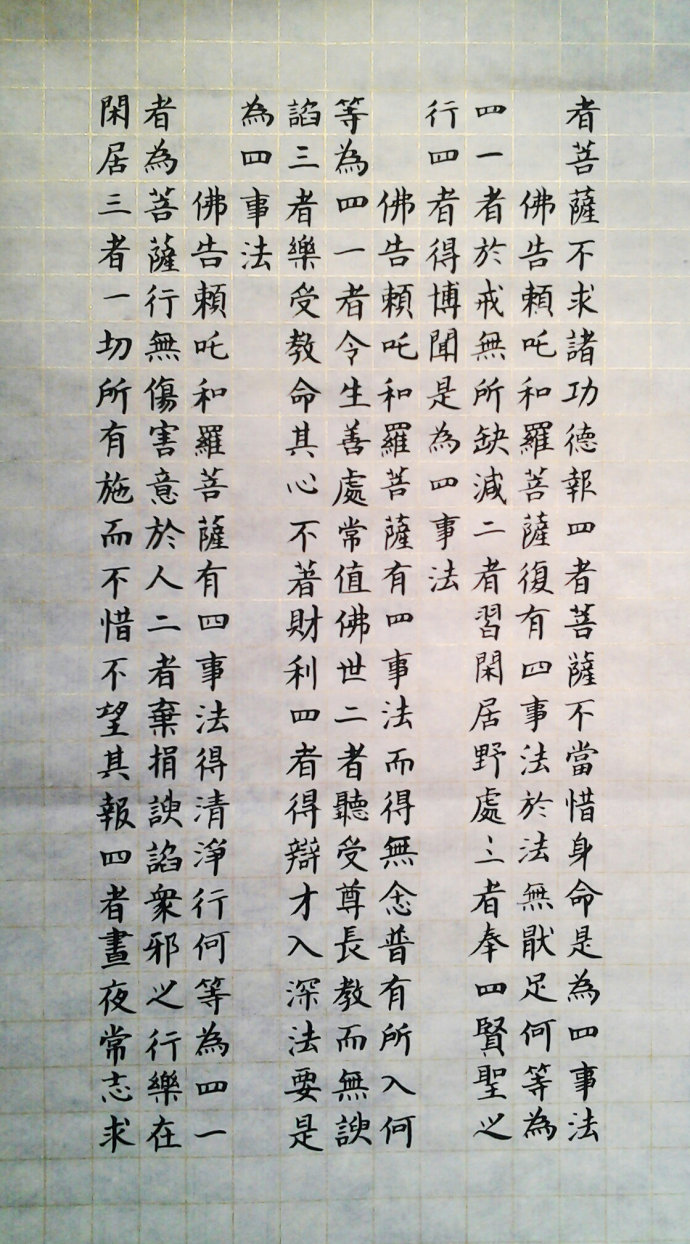 者菩薩不求諸功德報四者菩薩不當惜身命是為四事法
佛告賴吒和羅菩薩復有四事法於法無猒足何等為
四一者於戒無所缺減二者習閑居野處三者奉四賢聖之
行四者得博聞是為四事法
佛告賴吒和羅菩薩有四事法而得無念普有所入何
等為四一者令生善處常值佛世二者聽受尊長教而無諛
諂三者樂受教命其心不著財利四者得辯才入深法要是
為四事法
佛告賴吒和羅菩薩有四事法得清淨行何等為四一
者為菩薩行無傷害意於人二者棄捐諛諂衆邪之行樂在
閑居三者一切所有施而不惜不望其報四者晝夜常志求